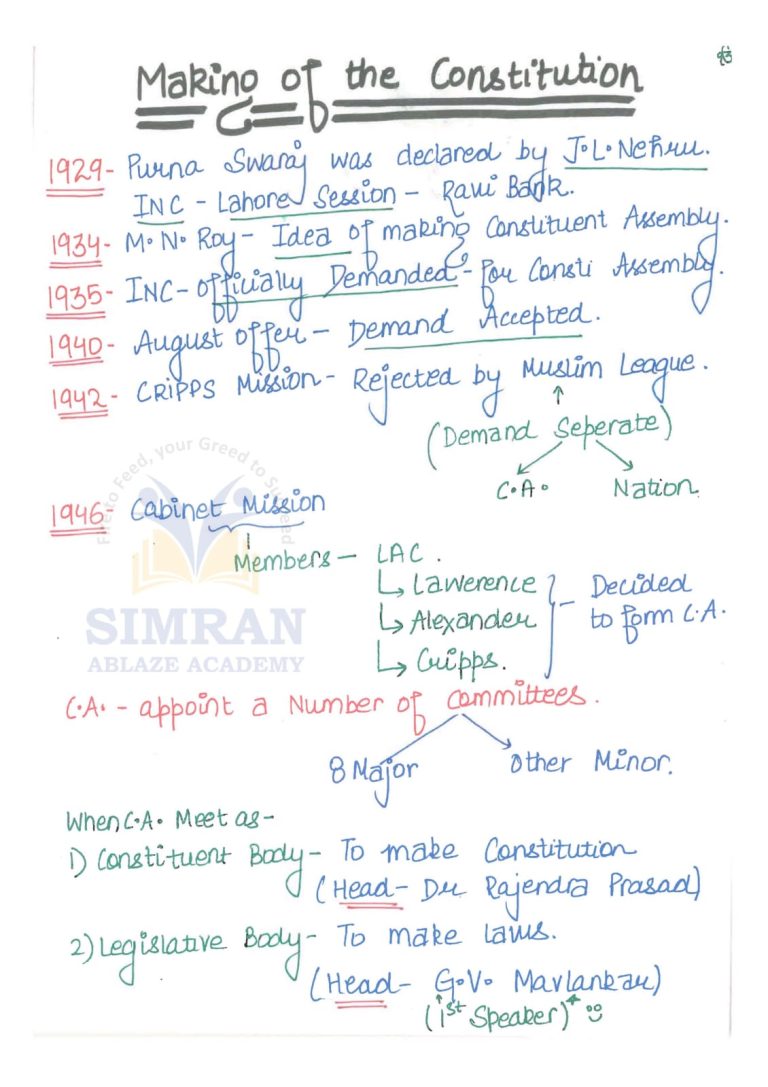 ੴ
Making of the Constitution
1929- Purna Swaraj was declared by J.L.Nehru.
INC - Lahore Session - Ravi Bank.
1934- M.N.Roy- Idea of making Constituent Assembly.
1935- INC- officially Demanded- for Consti Assembly.
1940- August offer - Demand Accepted.
1942- CRIPPS Mission- Rejected by Muslim League.
(Demand Seperate)
C.A. Nation
1946- Cabinet Mission
Members - LAC.
Lawerence
Alexander
Cripps.
Decided
to form C.A.
C.A. - appoint a Number of committees.
8 Major Other Minor.
When C.A. Meet as-
1) Constituent Body- To make Constitution
(Head- Dr Rajendra Prasad)
2) Legislative Body- To make laws.
(Head- G.V. Mavlankar)
(1st Speaker)
to Feed, your Greed to
SIMRAN
ABLAZE ACADEMY